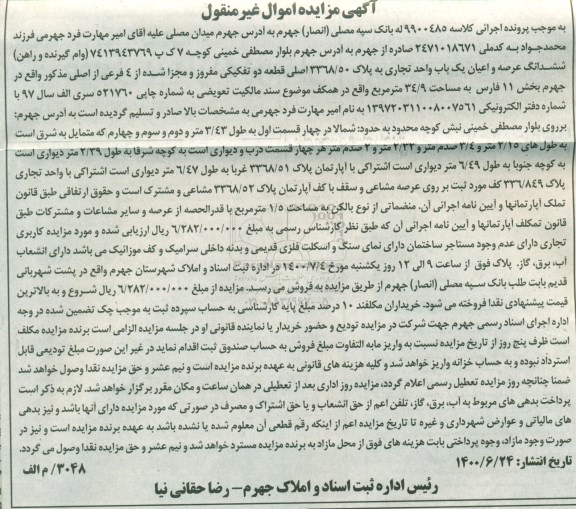 آگهی مزایده اموال غیر منقول
به موجب پرونده اجرائی کلاسه ۹۹۰۰۴۸۵ له بانک سپه مصلی (انصار) جهرم به آدرس جهرم میدان مصلی علیه آقای امیر مهارت فرد جهرمی فرزند
محمدجواد به کدملی ۲۴۷۱۰۱۸۶۷۱ صادره از جهرم به آدرس جهرم بلوار مصطفی خمینی کوچه ۷ ک پ ۷۴۱۳۹۴۳۷۶۹ (وام گیرنده و راهن)
ششدانگ عرصه و اعیان یک باب واحد تجاری به پلاک ۳۳۶۸/۵۰ اصلی قطعه دو تفکیکی مفروز و مجزا شده از ۴ فرعی از اصلی مذکور واقع در
جهرم بخش ۱۱ فارس به مساحت ۳۴/۹ مترمربع واقع در همکف موضوع سند مالکیت تعویضی به شماره چاپی ۵۲۱۷۶۰ سری الف سال ۹۷ با
شماره دفتر الکترونیکی ۱۳۹۷۲۰۳۱۱۰۰۸۰۰۷۵۶۱ به نام امیر مهارت فرد جهرمی به مشخصات بالا صادر و تسلیم گردیده است به آدرس جهرم:
برروی بلوار مصطفی خمینی نبش کوچه محدود به حدود: شمالا در چهار قسمت اول به طول ۳/۴۲ متر و دوم و سوم و چهارم که متمایل به شرق است
به طول های ۲/۱۵ متر و ۲/۴ صدم متر و ۲/۲۲ متر و ۲ صدم متر هر چهار قسمت درب و دیواری است به کوچه شرقا به طول ۲/۳۹ متر دیواری است
به کوچه جنوبا به طول ۶/۴۹ متر دیواری است اشتراکی با آپارتمان پلاک ۳۳۶۸/۵۱ غربا به طول ۶/۴۷ متر دیواری است اشتراکی با واحد تجاری
پلاک ۳۳۶/۸۴۹ کف مورد ثبت بر روی عرصه مشاعی و سقف با کف آپارتمان پلاک ۳۳۶۸/۵۲ مشاعی و مشترک است و حقوق ارتفاقی طبق قانون
تملک آپارتمانها و آیین نامه اجرائی آن. منضماتی از نوع بالکن به مساحت ۱/۵ مترمربع با قدرالحصه از عرصه و سایر مشاعات و مشترکات طبق
قانون تمکلف آپارتمانها و آیین نامه اجرائی آن که طبق نظر کارشناس رسمی به مبلغ ۶/۲۸۲/۰۰۰/۰۰۰ ریال ارزیابی شده و مورد مزایده کاربری
تجاری دارای عدم وجود مستاجر ساختمان دارای نمای سنگ و اسکلت فلزی قدیمی و بدنه داخلی سرامیک و کف موزائیک می باشد دارای انشعاب
آب، برق، گاز. پلاک فوق از ساعت ۹ الی ۱۲ روز یکشنبه مورخ ۱۴۰۰/۷/۴ در اداره ثبت اسناد و املاک شهرستان جهرم واقع در پشت شهربانی
قدیم بابت طلب بانک سپه مصلی (انصار) جهرم از طریق مزایده به فروش می رسد. مزایده از مبلغ ۶/۲۸۲/۰۰۰/۰۰۰ ریال شروع و به بالاترین
قیمت پیشنهادی نقدا فروخته می شود. خریداران مکلفند ۱۰ درصد مبلغ پایه کارشناسی به حساب سپرده ثبت به موجب چک تضمین شده در وجه
اداره اجرای اسناد رسمی جهرم جهت شرکت در مزایده تودیع و حضور خریدار یا نماینده قانونی او در جلسه مزایده الزامی است برنده مزایده مکلف
است ظرف پنج روز از تاریخ مزایده نسبت به واریز مابه التفاوت مبلغ فروش به حساب صندوق ثبت اقدام نماید در غیر این صورت مبلغ تودیعی قابل
استرداد نبوده و به حساب خزانه واریز خواهد شد و کلیه هزینه های قانونی به عهده برنده مزایده است و نیم عشر و حق مزایده نقدا وصول خواهد شد
ضمنا چنانچه روز مزایده تعطیل رسمی اعلام گردد، مزایده روز اداری بعد از تعطیلی در همان ساعت و مکان مقرر برگزار خواهد شد. لازم به ذکر است
پرداخت بدهی های مربوط به آب، برق، گاز، تلفن اعم از حق انشعاب و یا حق اشتراک و مصرف در صورتی که مورد مزایده دارای آنها باشد و نیز بدهی
های مالیاتی و عوارض شهرداری و غیره تا تاریخ مزایده اعم از اینکه رقم قطعی آن معلوم شده یا نشده باشد به عهده برنده مزایده است و نیز در
صورت وجود مازاد، وجوه پرداختی بابت هزینه های فوق از محل مازاد به برنده مزایده مسترد خواهد شد و نیم عشر و حق مزایده نقدا وصول می گردد.
تاریخ انتشار: ۱۴۰۰/۶/۲۴ ۳۰۴۸/م الف
رئیس اداره ثبت اسناد و املاک جهرم– رضا حقانی نیا